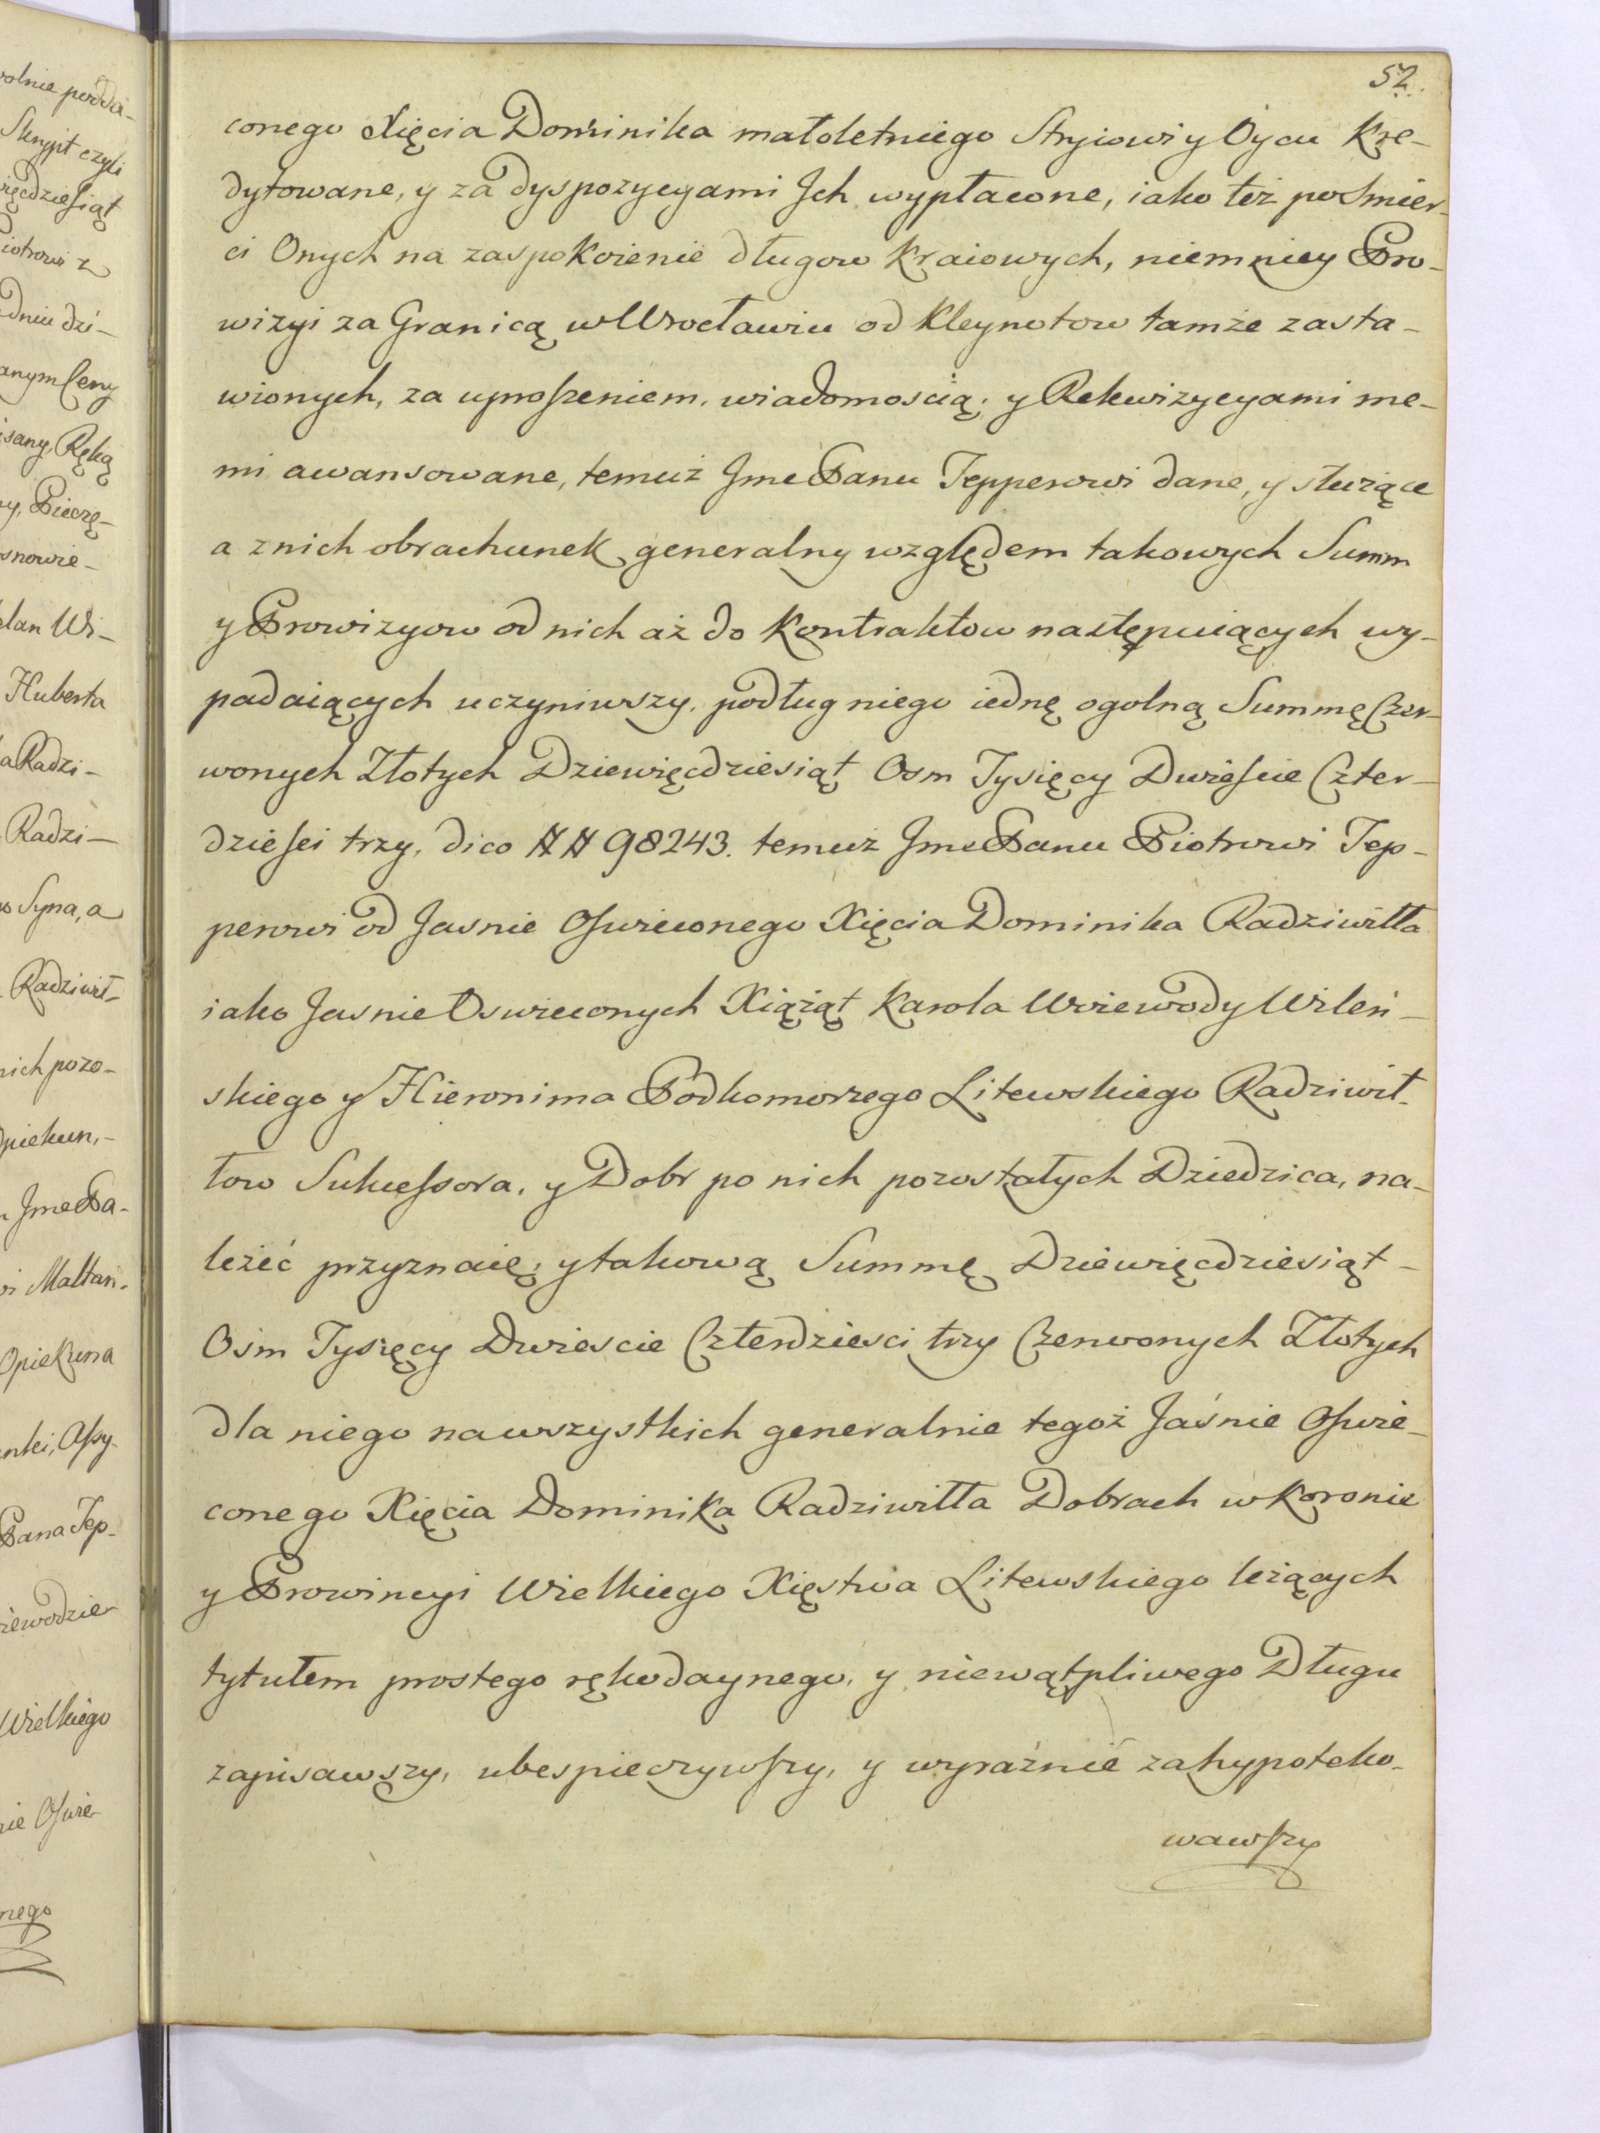 52.
conego Xięcia Dominika małoletniego Stryiowi y Oycu kre-
dytowane, y za dyspozycyami Jch wypłacone, iako też po Smier-
ci Onych na zaspokoienie długow kraiowych, niemniey Pro-
wizyi za Granicą w Wrocławiu od kleynotow tamże zasta-
wionych, za uproszeniem, wiadomoscią, y Rekwizycyami me-
mi awansowane, temuż Jmc Panu Tepperowi dane, y służące
a z nich obrachunek generalny względem takowych Summ
y Prowizyow od nich aż do kontraktow następuiących wy-
padaiących uczyniwszy, podług niego iednę ogolną Summę Czer-
wonych Złotych Dziewięcdziesiąt Osm Tysięcy Dwiescie Czter-
dziesci trzy, dico ## 98243. temuż Jmc Panu Piotrowi Tep-
perowi od Jasnie Oswieconego Xięcia Dominika Radziwiłła
iako Jasnie Oswieconych Xiążąt Karola Woiewody Wileń-
skiego y Hieronima Podkomorzego Litewskiego Radziwił-
łow Sukcessora, y Dobr po nich pozostałych Dziedzica, na-
leżeć przyznaię; y takową Summę Dziewięcdziesiąt-
Ośm Tysięcy Dwiescie Czterdziesci trzy Czerwonych Złotych
dla niego na wszystkich generalnie tegoż Jaśnie Oswie-
conego Xięcia Dominika Radziwiłła Dobrach w Koronie
y Prowincyi Wielkiego Xięstwa Litewskiego leżących
tytułem prostego rękodaynego, y niewątpliwego Długu
zapisawszy, ubespieczywszy, y wyraźnie zahypoteko-
wawszy